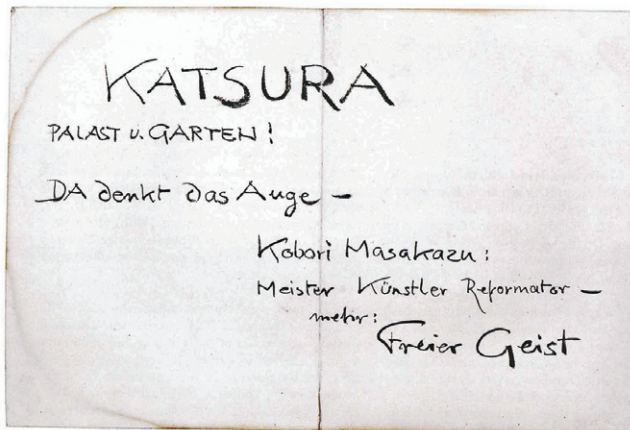 KATSURA
PALAST U. GARTEN!
DA denkt das Auge –
Kobori Masakazu:
Meister Künstler Reformator –
mehr:
Freier Geist